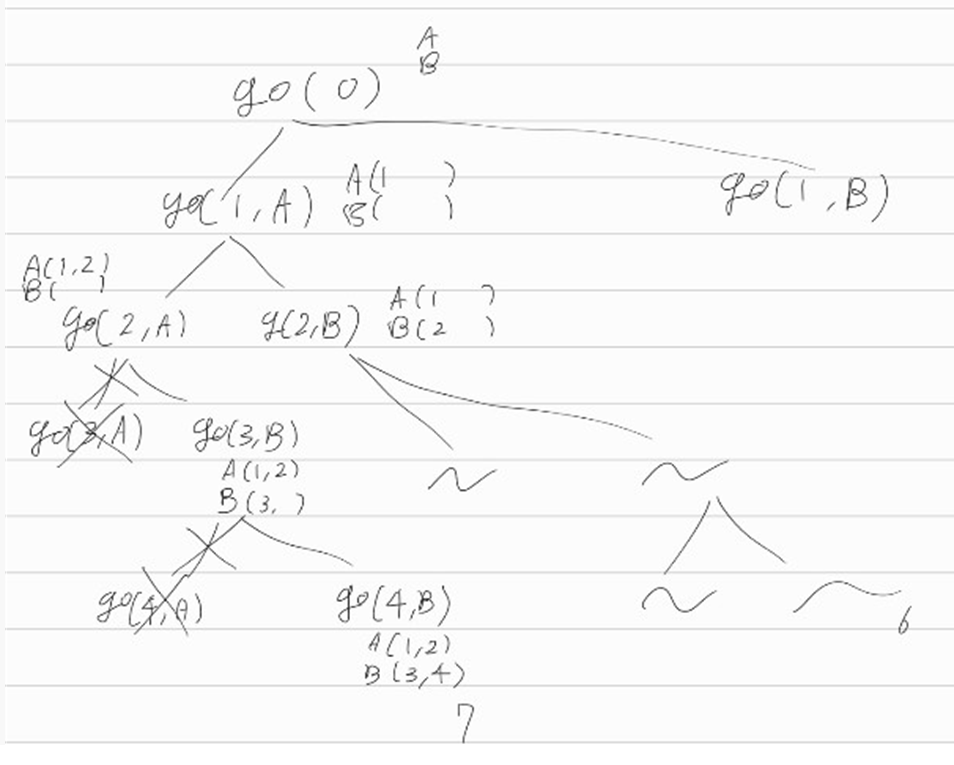 A
B
go(0)
go(1,A)
A(1 )
B( )
go(1,B)
A(1,2)
B( )
go(2,A)
g(2,B)
A(1 )
B(2 )
go(3,A)
go(3,B)
A(1,2)
B(3, )
go(4,A)
go(4,B)
A(1,2)
B(3,4)
6
7